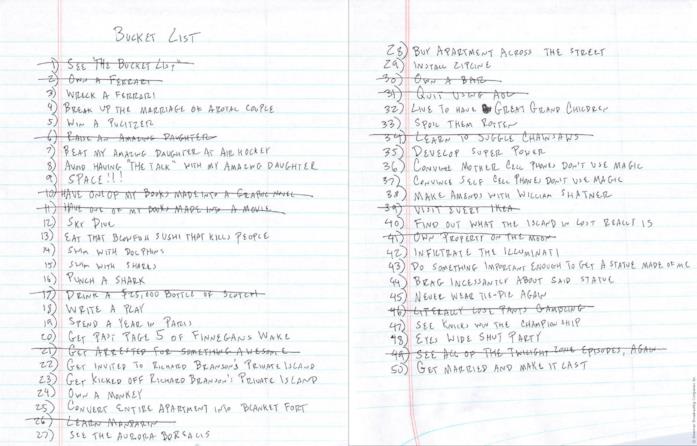 BUCKET LIST
1) SEE "THE BUCKET LIST"
2) OWN A FERRARI
3) WRECK A FERRARI
4) BREAK UP THE MARRIAGE OF A ROYAL COUPLE
5) WIN A PULITZER
6) RAISE AN AMAZING DAUGHTER
7) BEAT MY AMAZING DAUGHTER AT AIR HOCKEY
8) AVOID HAVING "THE TALK" WITH MY AMAZING DAUGHTER
9) SPACE!!!
10) HAVE ONE OF MY BOOKS MADE INTO A GRAPHIC NOVEL
11) HAVE ONE OF MY BOOKS MADE INTO A MOVIE
12) SKY DIVE
13) EAT THAT BLOWFISH SUSHI THAT KILLS PEOPLE
14) SWIM WITH DOLPHINS
15) SWIM WITH SHARKS
16) PUNCH A SHARK
17) DRINK A $25,000 BOTTLE OF SCOTCH
18) WRITE A PLAY
19) SPEND A YEAR IN PARIS
20) GET PAST PAGE 5 OF FINNEGANS WAKE
21) GET ARRESTED FOR SOMETHING AWESOME
22) GET INVITED TO RICHARD BRANSON'S PRIVATE ISLAND
23) GET KICKED OFF RICHARD BRANSON'S PRIVATE ISLAND
24) OWN A MONKEY
25) CONVERT ENTIRE APARTMENT INTO BLANKET FORT
26) LEARN MANDARIN
27) SEE THE AURORA BOREALIS
28) BUY APARTMENT ACROSS THE STREET
29) INSTALL ZIPLINE
30) OWN A BAR
31) QUIT USING AOL
32) LIVE TO HAVE GREAT GRAND CHILDREN
33) SPOIL THEM ROTTEN
34) LEARN TO JUGGLE CHAINSAWS
35) DEVELOP SUPER POWER
36) CONVINCE MOTHER CELL PHONES DON'T USE MAGIC
37) CONVINCE SELF CELL PHONES DON'T USE MAGIC
38) MAKE AMENDS WITH WILLIAM SHATNER
39) VISIT EVERY IKEA
40) FIND OUT WHAT THE ISLAND IN LOST REALLY IS
41) OWN PROPERTY ON THE MOON
42) INFILTRATE THE ILLUMINATI
43) DO SOMETHING IMPORTANT ENOUGH TO GET A STATUE MADE OF ME
44) BRAG INCESSANTLY ABOUT SAID STATUE
45) NEVER WEAR TIE-DIE AGAIN
46) LITERALLY LOSE PANTS GAMBLING
47) SEE KNICKS WIN THE CHAMPIONSHIP
48) EYES WIDE SHUT PARTY
49) SEE ALL OF THE TWILIGHT ZONE EPISODES, AGAIN
50) GET MARRIED AND MAKE IT LAST